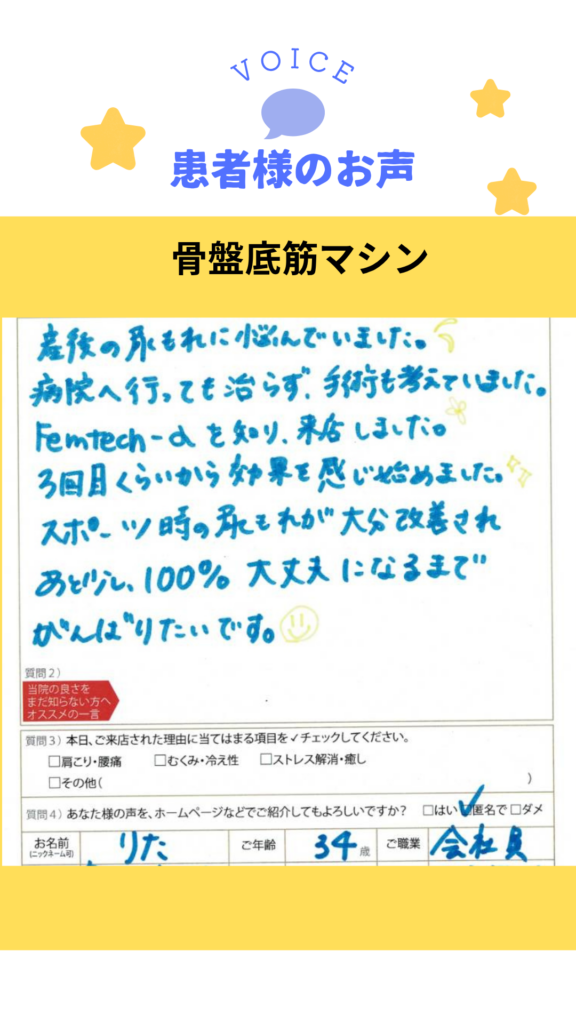 VOICE
患者様のお声
骨盤底筋マシン
産後の尿もれに悩んでいました。
病院へ行っても治らず、手術も考えていました。
Femtech-αを知り、来店しました。
3回目くらいから効果を感じ始めました。
スポーツ時の尿もれが大分改善され
あと少し、100%大丈夫になるまで
がんばりたいです。
質問2）
当院の良さを
まだ知らない方へ
オススメの一言
質問3）本日、ご来店された理由に当てはまる項目を✓チェックしてください。
□肩こり・腰痛 □むくみ・冷え性 □ストレス解消・癒し
□その他( )
質問4）あなた様の声を、ホームページなどでご紹介してもよろしいですか？ □はい ☑匿名で □ダメ
お名前 りた ご年齢 34歳 ご職業 会社員
(ニックネーム可)